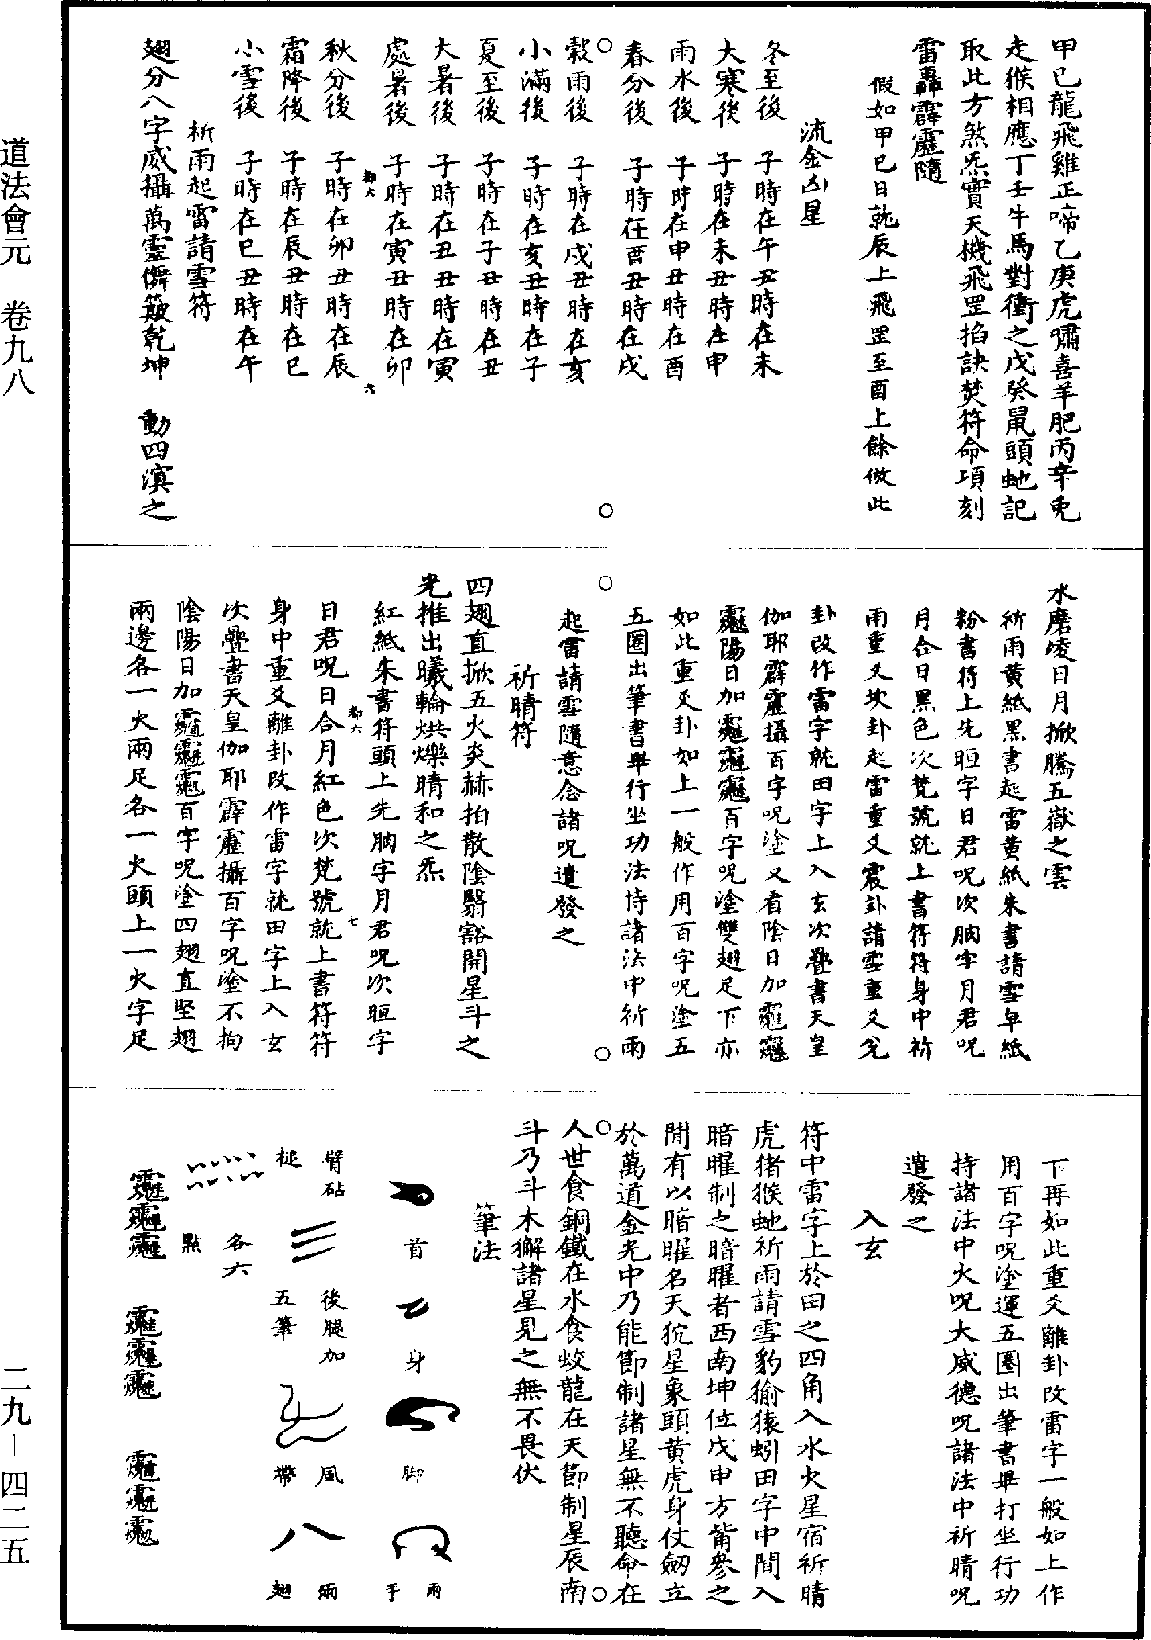 甲己龍飛雞正啼乙庚虎嘯喜羊肥丙辛兔
走猴相應丁壬牛馬對衝之戊癸鼠頭蚍記
取此方煞炁寶天機飛罡掐訣焚符命項刻
雷轟霹靂隨
假如甲己日就辰上飛罡至酉上餘倣此
流金凶星
冬至後 子時在午丑時在未
大寒後 子時在未丑時在申
雨水後 子時在申丑時在酉
春分後 子時在酉丑時在戌
穀雨後 子時在戌丑時在亥
小滿後 子時在亥丑時在子
夏至後 子時在子丑時在丑
大暑後 子時在丑丑時在寅
處暑後 子時在寅丑時在卯
秋分後 子時在卯丑時在辰
霜降後 子時在辰丑時在巳
小雪後 子時在巳丑時在午
祈雨起雷請雪符
翅分八字威攝萬靈儕簸乾坤 動四溟之
水磨凌日月掀騰五嶽之雲
祈雨黃紙黑書起雷黃紙朱書請雪皁紙
粉書符上先晅字日君呪次朏字月君呪
月合日黑色次梵號就上書符符身中祈
雨重爻坎卦起雷重爻震卦請雪重爻兌
卦改作雷字就田字上入玄次疊書天皇
伽耶霹靂攝百字呪塗又看陰日加
陽日加 百字呪塗雙翅足下亦
如此重爻卦如上一般作用百字呪塗五
五圈出筆書畢行坐功法持諸法中祈雨
起雷請雪隨意念諸呪遣發之
祈晴符
四翅直掀五火炎赫拍散陰翳豁開星斗之
光推出曦輪烘爍晴和之炁
紅紙朱書符頭上先朏字月君呪次晅字
日君呪日合月紅色次梵號就上書符符
身中重爻離卦改作雷字就田字上入玄
次疊書天皇伽耶霹靂攝百字呪塗不拘
陰陽日加 百字呪塗四翅直堅翅
兩邊各一火兩足各一火頭上一火字足
下再如此重爻離卦改雷字一般如上作
用百字呪塗運五圈出筆書畢打坐行功
持諸法中火呪大威德呪諸法中祈晴呪
遣發之
入玄
符中雷字上於田之四角入水火星宿祈晴
虎猪猴虵祈雨請雪豹㺄猿蚓田字中間入
暗曜制之暗曜者西南坤位戊申方觜參之
間有以暗曜名天狁星象頭黃虎身仗劒立
於萬道金光中乃能節制諸星無不聽命在
人世食銅鐵在水食蛟龍在天節制星辰南
斗乃斗木獬諸星見之無不畏伏
筆法
首
身
脚
兩手
臂砧
槌
後腿加
五筆
風帶
兩翅
各六
點
道法會元 卷九八
二九－四二五